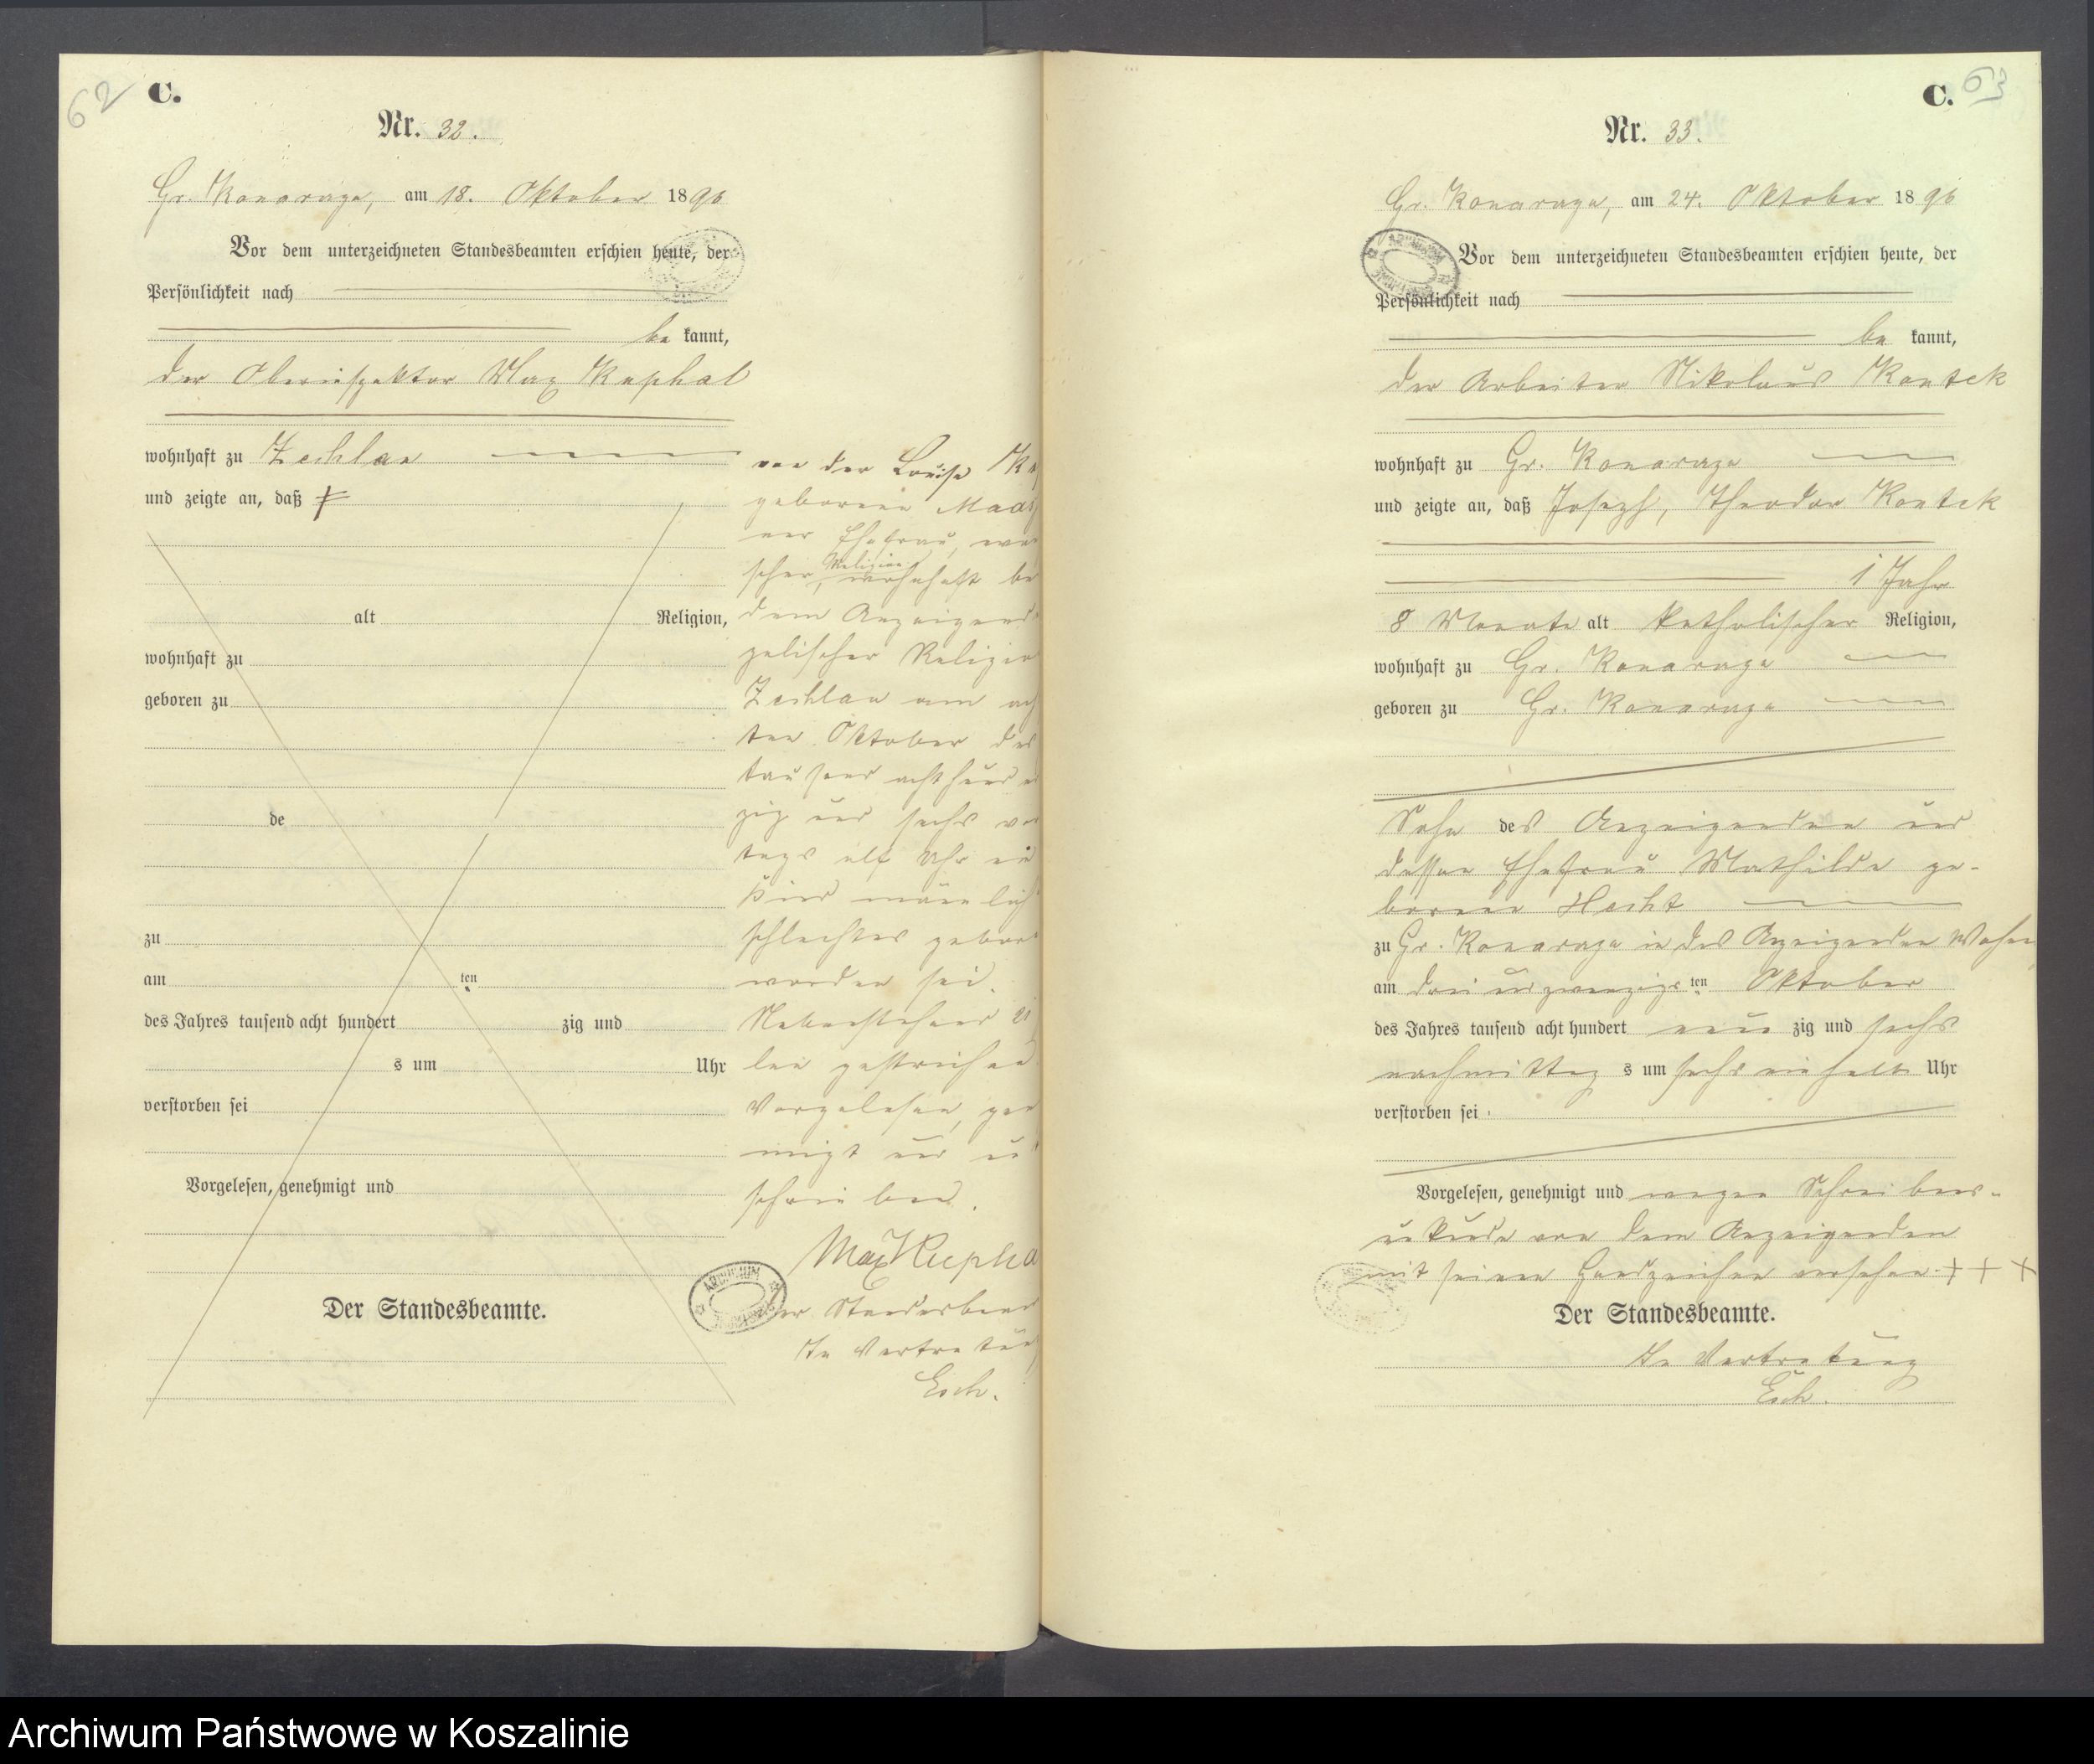 62
C.
Nr. 32.
Gr. Konarzyn, am 18. Oktober 1896
Vor dem unterzeichneten Standesbeamten erschien heute, der
Persönlichkeit nach
be kannt,
der Oberinspektor Max Kuphal
wohnhaft zu Zechlau
und zeigte an, daß
alt Religion,
wohnhaft zu
geboren zu
de
zu
am ten
des Jahres tausend acht hundert zig und
s um Uhr
verstorben sei
Vorgelesen, genehmigt und
Der Standesbeamte.
von der Louise
geborene
ner Ehefrau,
scher Religion, wohnhaft be
dem Anzeigend
gelischer Religio
Zechlau am
ten Oktober des
tausend achthund
zig und sechs vor
tags elf Uhr ein
Kind männlich
schlechtes gebor
worden sei.
Nebenstehend
len gestrichen
Vorgelesen, gen
migt und u
schrieben.
Max Kupha
Der Standesbeam
In Vertretun
Esch.
C. 63
Nr. 33.
Gr. Konarzyn, am 24. Oktober 1896
Vor dem unterzeichneten Standesbeamten erschien heute, der
Persönlichkeit nach
be kannt,
der Arbeiter Nikolaus Kontek
wohnhaft zu Gr. Konarzyn
und zeigte an, daß Joseph, Theodor Kontek
1 Jahr
8 Monate alt katholischer Religion,
wohnhaft zu Gr. Konarzyn
geboren zu Gr. Konarzyn
Sohn des Anzeigenden und
dessen Ehefrau Mathilde ge-
borene Hecht
zu Gr. Konarzyn in des Anzeigenden Wohn
am drei und zwanzigsten Oktober
des Jahres tausend acht hundert neun zig und sechs
nachmittag s um sechs ein halb Uhr
verstorben sei.
Vorgelesen, genehmigt und wegen Schreibens-
unkunde von dem Anzeigenden
mit seinen Handzeichen versehen. + + +
Der Standesbeamte.
In Vertretung
Esch.
Archiwum Państwowe w Koszalinie